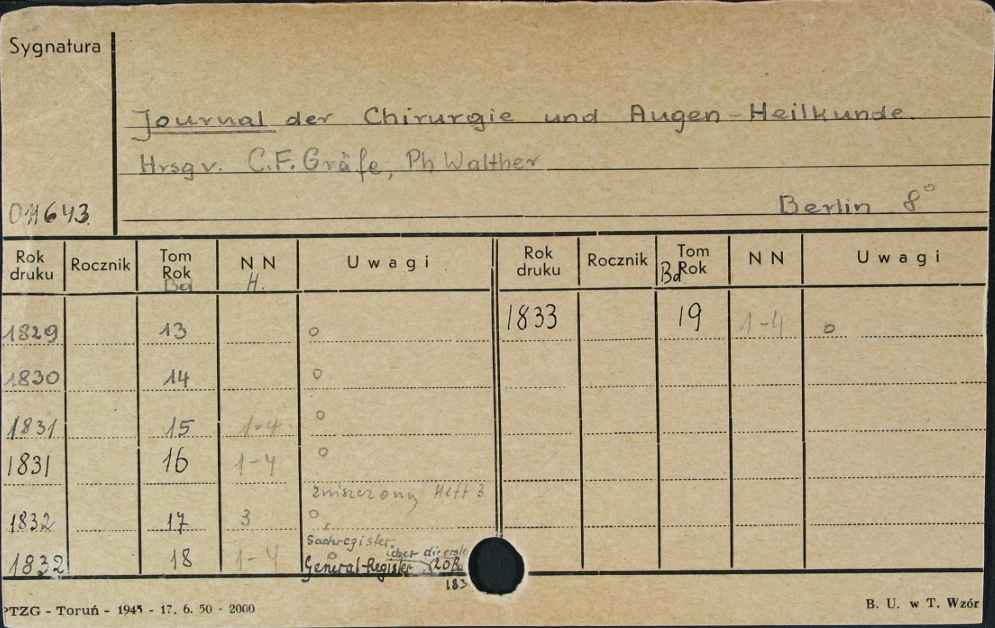 Sygnatura
Journal der Chirurgie und Augen-Heilkunde.
Hrsg v. C.F. Gräfe, Ph Walther
011643.
Berlin 8°
Rok druku Rocznik Tom Rok Bd N N H. Uwagi Rok druku Rocznik Tom Bd Rok N N Uwagi
1829 13 o 1833 19 1-4 o
1830 14 o
1831 15 1-4 o
1831 16 1-4 o
zniszczony Heft 3
1832 17 3 o
Sachregister
über die erste
1832 18 1-4 General-Register 20 B
183
PTZG - Toruń - 1945 - 17. 6. 50 - 2000
B. U. w T. Wzór